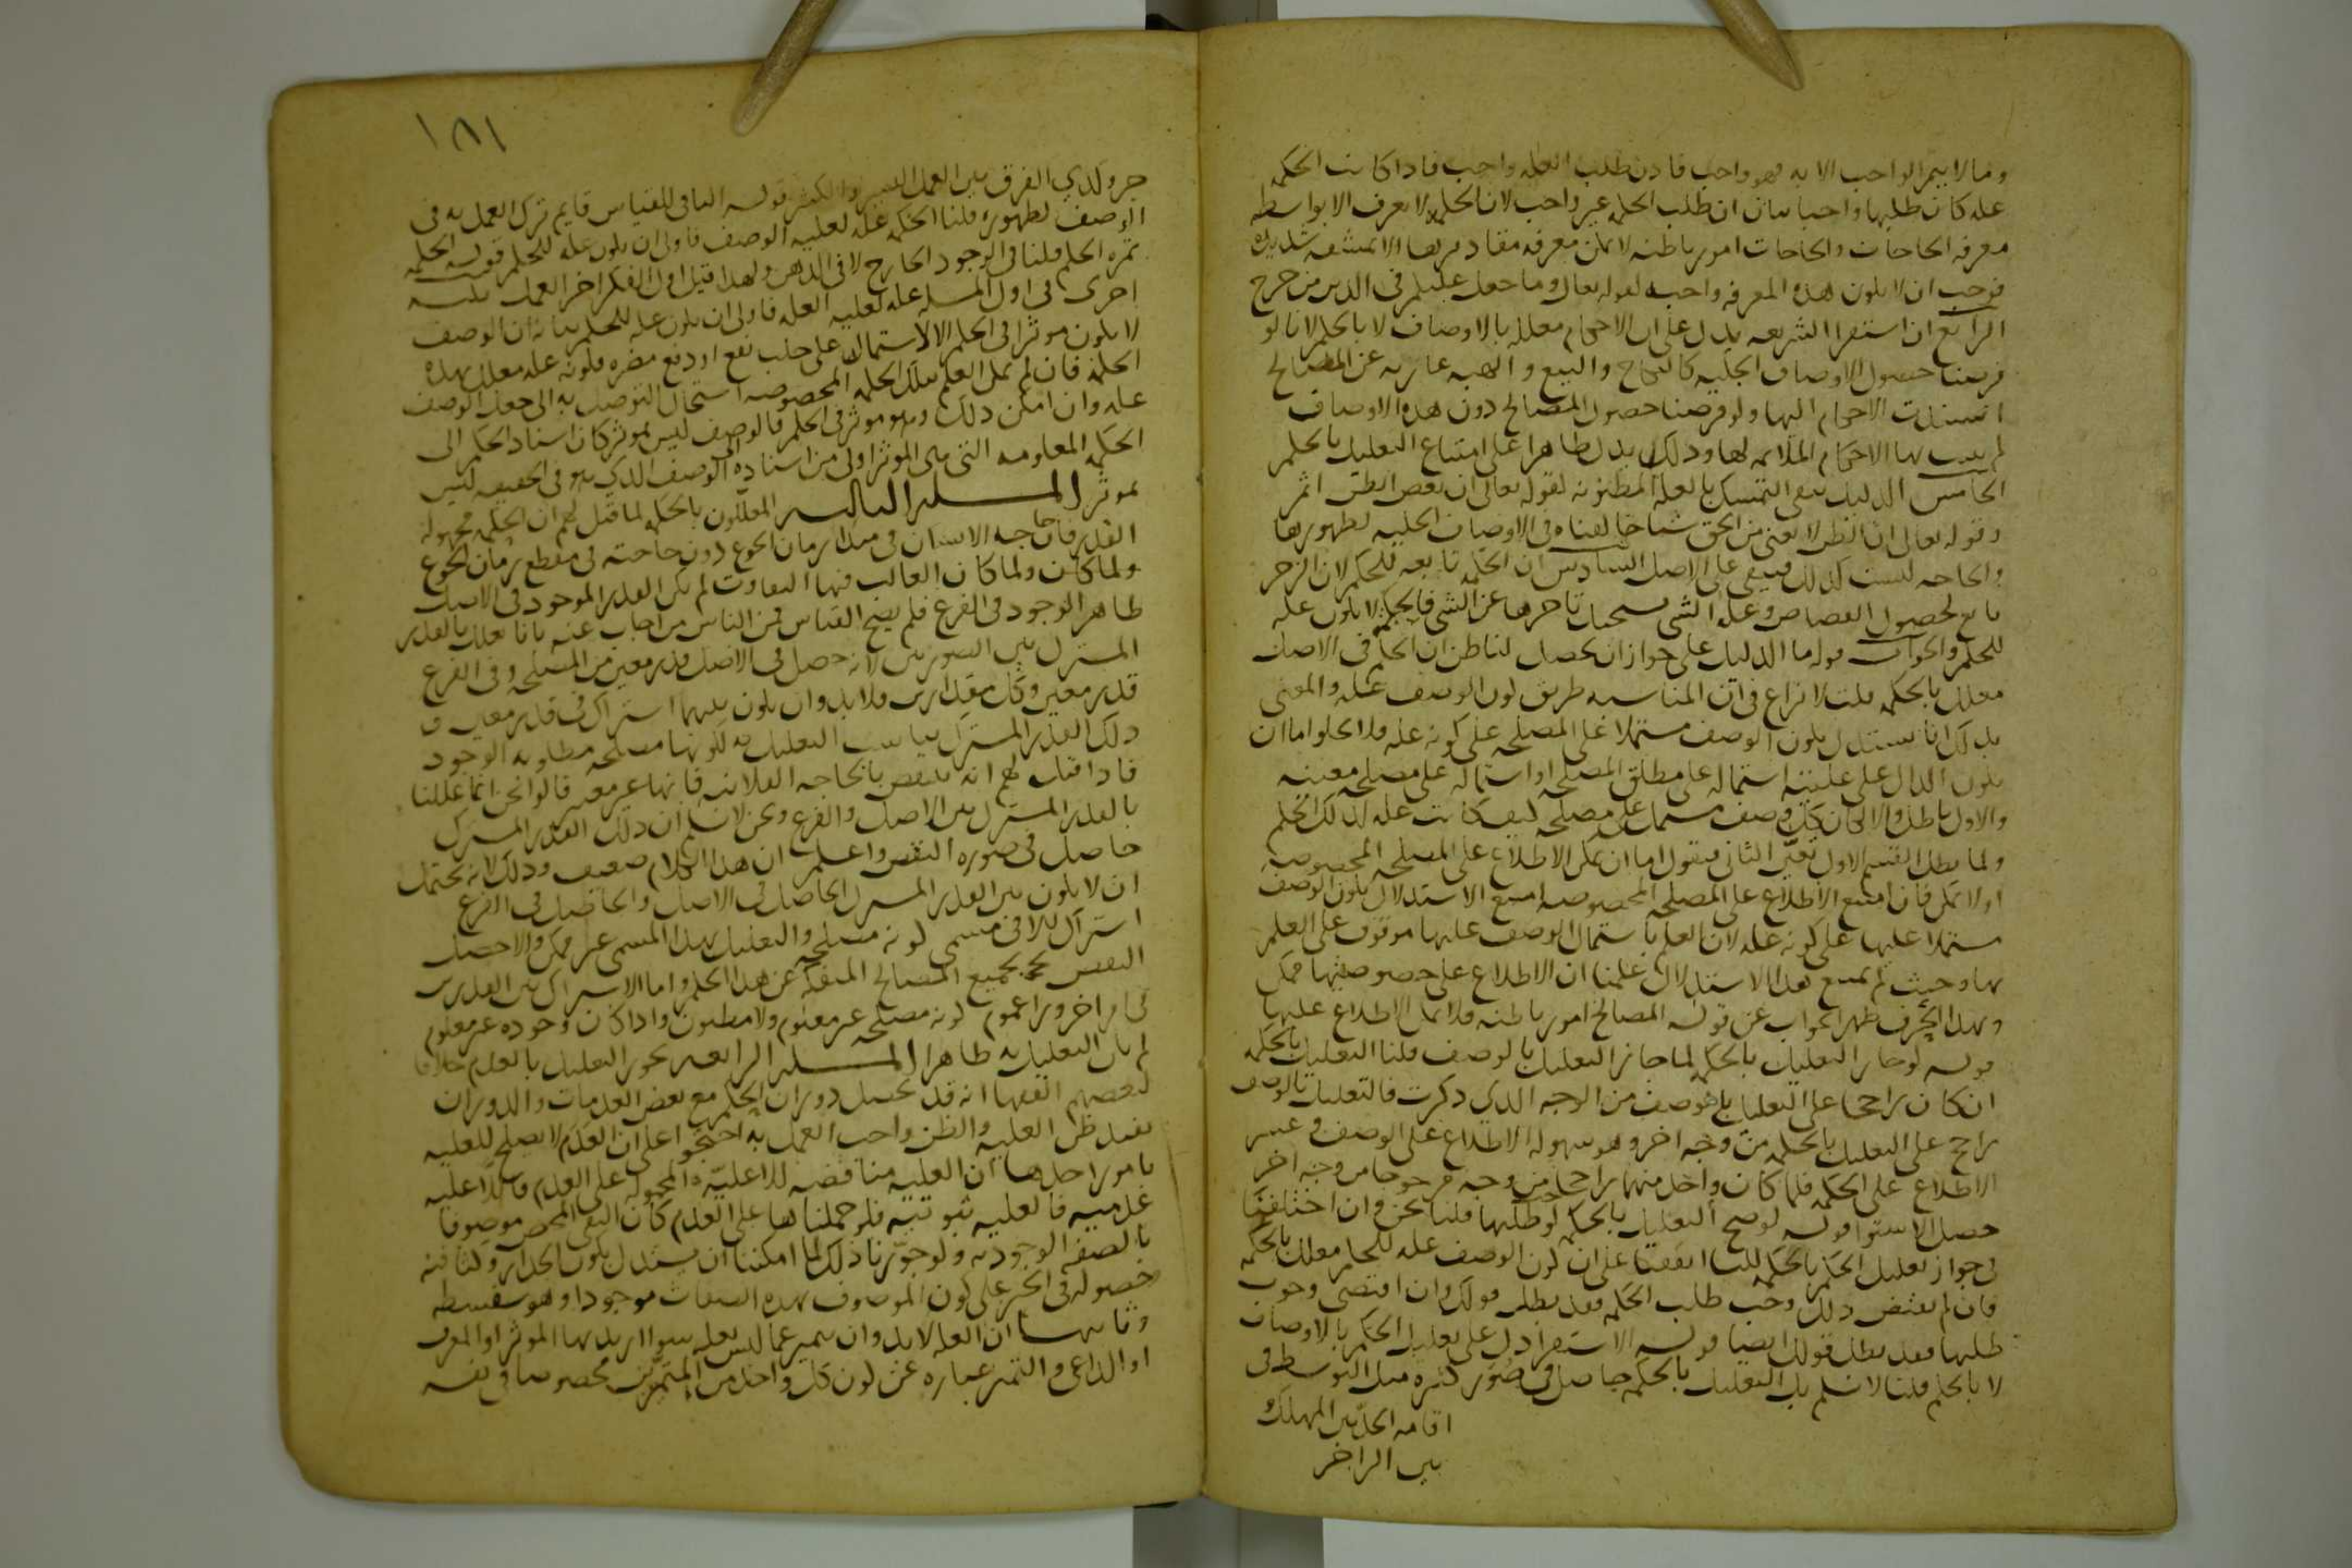 وما لا يتم الواجب الا به فهو واجب فاذن طلب العله واجب فاذا كانت الحكمه
عله كان طلبها واجبا بيان ان طلب الحكمه غير واجب لان الحكمه لا تعرف الا بواسطه
معرفه الحاجات والحاجات امور باطنه لا يمكن معرفه مقاديرها الا بمشقه شديده
فوجب ان لا يكون هذه المعرفه واجبه لقوله تعالى وما جعل عليكم في الدين من حرج
الرابع ان استقرا الشريعه يدل على ان الاحكام معلله بالاوصاف لا بالحكم لانا لو
فرضنا حصول الاوصاف الجليه كالنكاح والبيع والهبه عاريه عن المصالح
استندت الاحكام اليها ولو فرضنا حصول المصالح دون هذه الاوصاف
لم يثبت بها الاحكام الملايمه لها وذلك يدل ظاهرا على امتناع التعليل بالحكم
الخامس الدليل ينفي التمسك بالعله المظنونه لقوله تعالى ان بعض الظن اثم
وقوله تعالى ان الظن لا يغني من الحق شيا خالفناه في الاوصاف الجليه لظهورها
والحاجه ليست كذلك فيبقى على الاصل السادس ان الحكمه تابعه للحكم لان الزجر
تابع لحصول القصاص وعله الشي يستحيل تاخرها عن الشي فالحكمه لا يكون عله
للحكم والجواب قوله ما الدليل على جواز ان يحصل لنا ظن ان الحكم في الاصل
معلل بالحكمه قلنا لا نزاع في ان المناسبه طريق كون الوصف عله والمعنى
بذلك انا نستدل بكون الوصف مشتملا على المصلحه على كونه عله فلا يخلو اما ان
يكون الدال على عليته اشتماله على مطلق المصلحه او اشتماله على مصلحه معينه
والاول باطل والا لكان كل وصف مشتمل على مصلحه كيف كانت عله لذلك الحكم
ولما بطل القسم الاول تعين الثاني فنقول اما ان يمكن الاطلاع على المصلحه المخصوصه
او لا يمكن فان امتنع الاطلاع على المصلحه المخصوصه امتنع الاستدلال بكون الوصف
مشتملا عليها على كونه عله لان العلم باشتمال الوصف عليها موقوف على العلم
بها وحيث لم يمتنع هذا الاستدلال علمنا ان الاطلاع على خصوصيتها ممكن
وبهذا الحرف ظهر الجواب عن قوله المصالح امور باطنه فلا يمكن الاطلاع عليها
قوله لو جاز التعليل بالحكمه لما جاز التعليل بالوصف قلنا التعليل بالحكمه
ان كان راجحا على التعليل بالوصف من الوجه الذي ذكرت فالتعليل بالوصف
راجح على التعليل بالحكمه من وجه اخر وهو سهوله الاطلاع على الوصف وعسر
الاطلاع على الحكمه فلما كان واحد منهما راجحا من وجه مرجوحا من وجه اخر
حصل الاستوا قوله لو صح التعليل بالحكمه لوجب طلبها قلنا نحن وان اختلفنا
في جواز تعليل الحكم بالحكمه لكنا اتفقنا على ان كون الوصف عله للحكم معلل بالحكمه
فان لم يقتض ذلك وجب طلب الحكمه فقد بطل قولك وان اقتضى وجوب
طلبها فقد بطل قولك ايضا قوله الاستقرا دل على تعليل الحكم بالاوصاف
لا بالحكم قلنا لا نسلم بل التعليل بالحكمه حاصل في صور كثيره مثل التوسط في
اقامه الحد بين المهلك
بين الزاجر
١٨١
جر وكذي الفرق بين العمل اليسير والكثير قوله النافي للقياس قايم ترك العمل به في
الوصف لظهوره قلنا الحكمه عله لعليه الوصف فاولى ان يكون عله للحكم قوله الحكمه
ثمره الحكم قلنا في الوجود الخارج لا في الذهن ولهذا قيل اول الفكر اخر العمل نكته
اخرى في اول المسله عله لعليه العله فاولى ان يكون عله للحكم بيانه ان الوصف
لا يكون موثرا في الحكم الا لاشتماله على جلب نفع او دفع مضره فكونه عله معلل بهذه
الحكمه فان لم يمكن العلم بتلك الحكمه المخصوصه استحال التوصل به الى جعل الوصف
عله وان امكن ذلك وهو موثر في الحكم فالوصف ليس بموثر كان اسناد الحكم الى
الحكمه المعلومه التي هي الموثر اولى من اسناده الى الوصف الذي هو في الحقيقه ليس
بموثر المسله الثالثه المعللون بالحكمه لما قيل لهم ان الحكمه مجهوله
القدر فان حاجه الانسان في مبدا زمان الجوع دون حاجته في مقطع زمان الجوع
ولما كان الغالب فيها التفاوت لم يكن القدر الموجود في الاصل
ظاهر الوجود في الفرع فلم يصح القياس فمن الناس من اجاب عنه بانا نعلل بالقدر
المشترك بين الصورتين لانه حصل في الاصل قدر معين من المصلحه وفي الفرع
قدر معين وكل مقدارين فلا بد وان يكون بينهما اشتراك في قدر معين و
ذلك القدر المشترك يناسب التعليل به لكونها مصلحه مطلوبه الوجود
فاذا قيل لهم انه ينقض بالحاجه الفلانيه فانها غير معتبره قالوا نحن انما عللنا
بالقدر المشترك بين الاصل والفرع ونحن لا نسلم ان ذلك القدر المشترك
حاصل في صوره النقض واعلم ان هذا الكلام ضعيف وذلك لانه يحتمل
ان لا يكون بين القدر المشترك الحاصل في الاصل والحاصل في الفرع
اشتراك الا في مسمى كونه مصلحه والتعليل بهذا المسمى غير ممكن والا حصل
النقض بجميع المصالح المنفكه عن هذا الحكم واما الاشتراك بين القدرين
في امر اخر ورا عموم كونه مصلحه غير معلوم ولا مظنون واذا كان وجوده غير معلوم
لم يكن التعليل به ظاهرا المسله الرابعه يجوز التعليل بالعدم خلافا
لبعضهم الفقها انه قد يحصل دوران الحكم مع بعض العدمات والدوران
يفيد ظن العليه والظن واجب العمل به احتجوا على ان العدم لا يصلح للعليه
بامور احدها ان العليه مناقضه للاعليه المحموله على العدم فاللاعليه
عدميه فالعليه ثبوتيه فلو حملناها على العدم كان النفي المحض موصوفا
بالصفه الوجوديه ولو جوزنا ذلك لما امكننا ان نستدل بلون الجدار وكثافته
وحصوله في الحيز على كون الموصوف بهذه الصفات موجودا وهو سفسطه
وثانيها ان العله لا بد وان تتميز عما ليس بعله سوا اريد بها الموثر او المعرف
او الداعي والتميز عباره عن كون كل واحد من المتميزين مخصوصا في نفسه